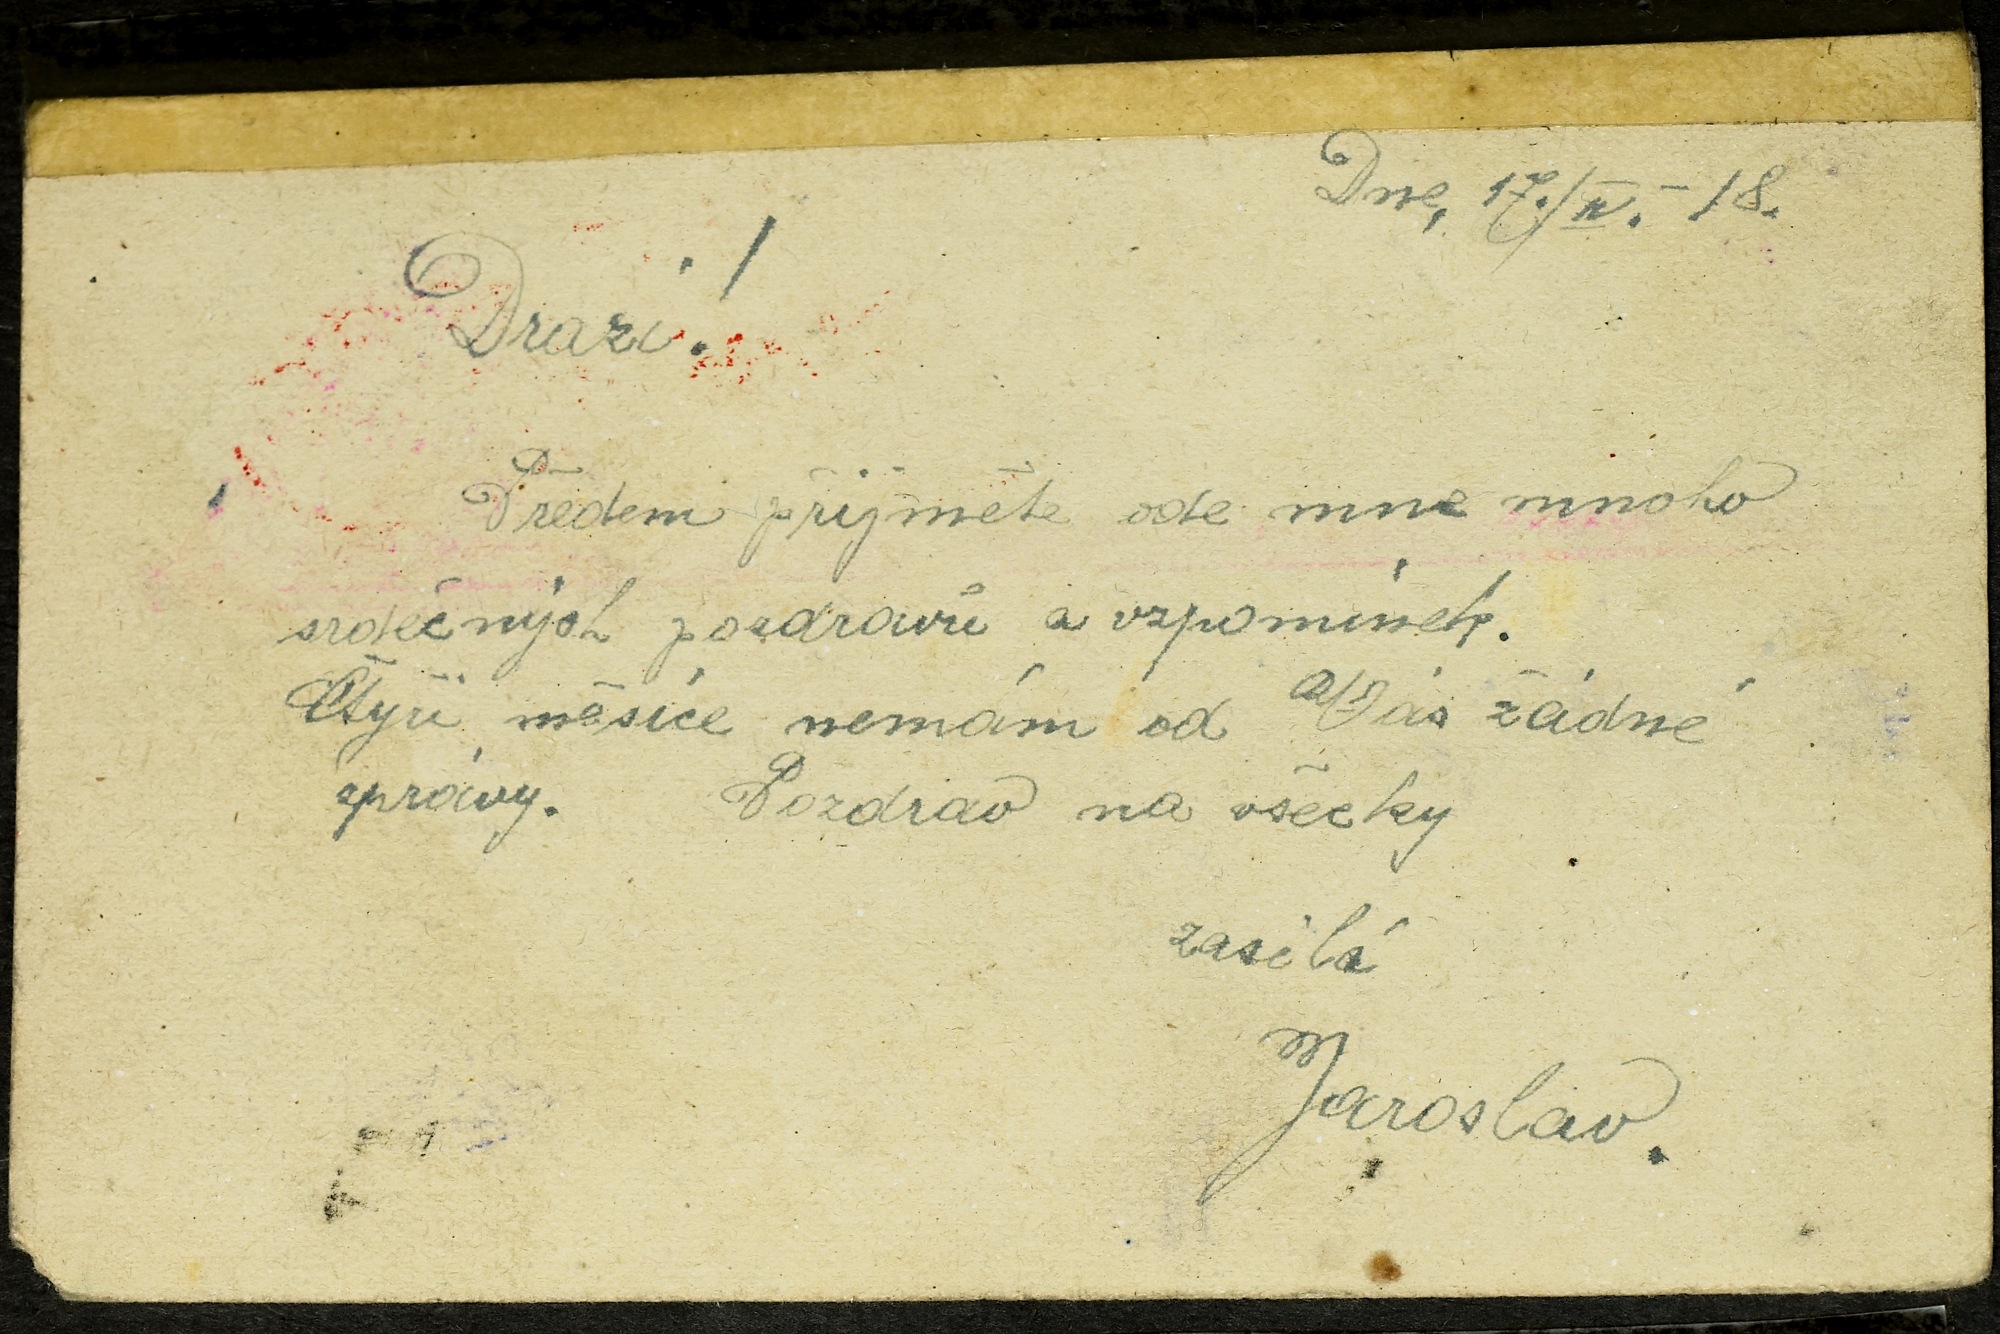 Dne, 17./II. - 18.
Drazí!
Předem přijměte ode mne mnoho
srdečných pozdravů a vzpomínek.
Čtyři měsíce nemám od Vás žádné
zprávy. Pozdrav na všecky
zasílá
Jaroslav.